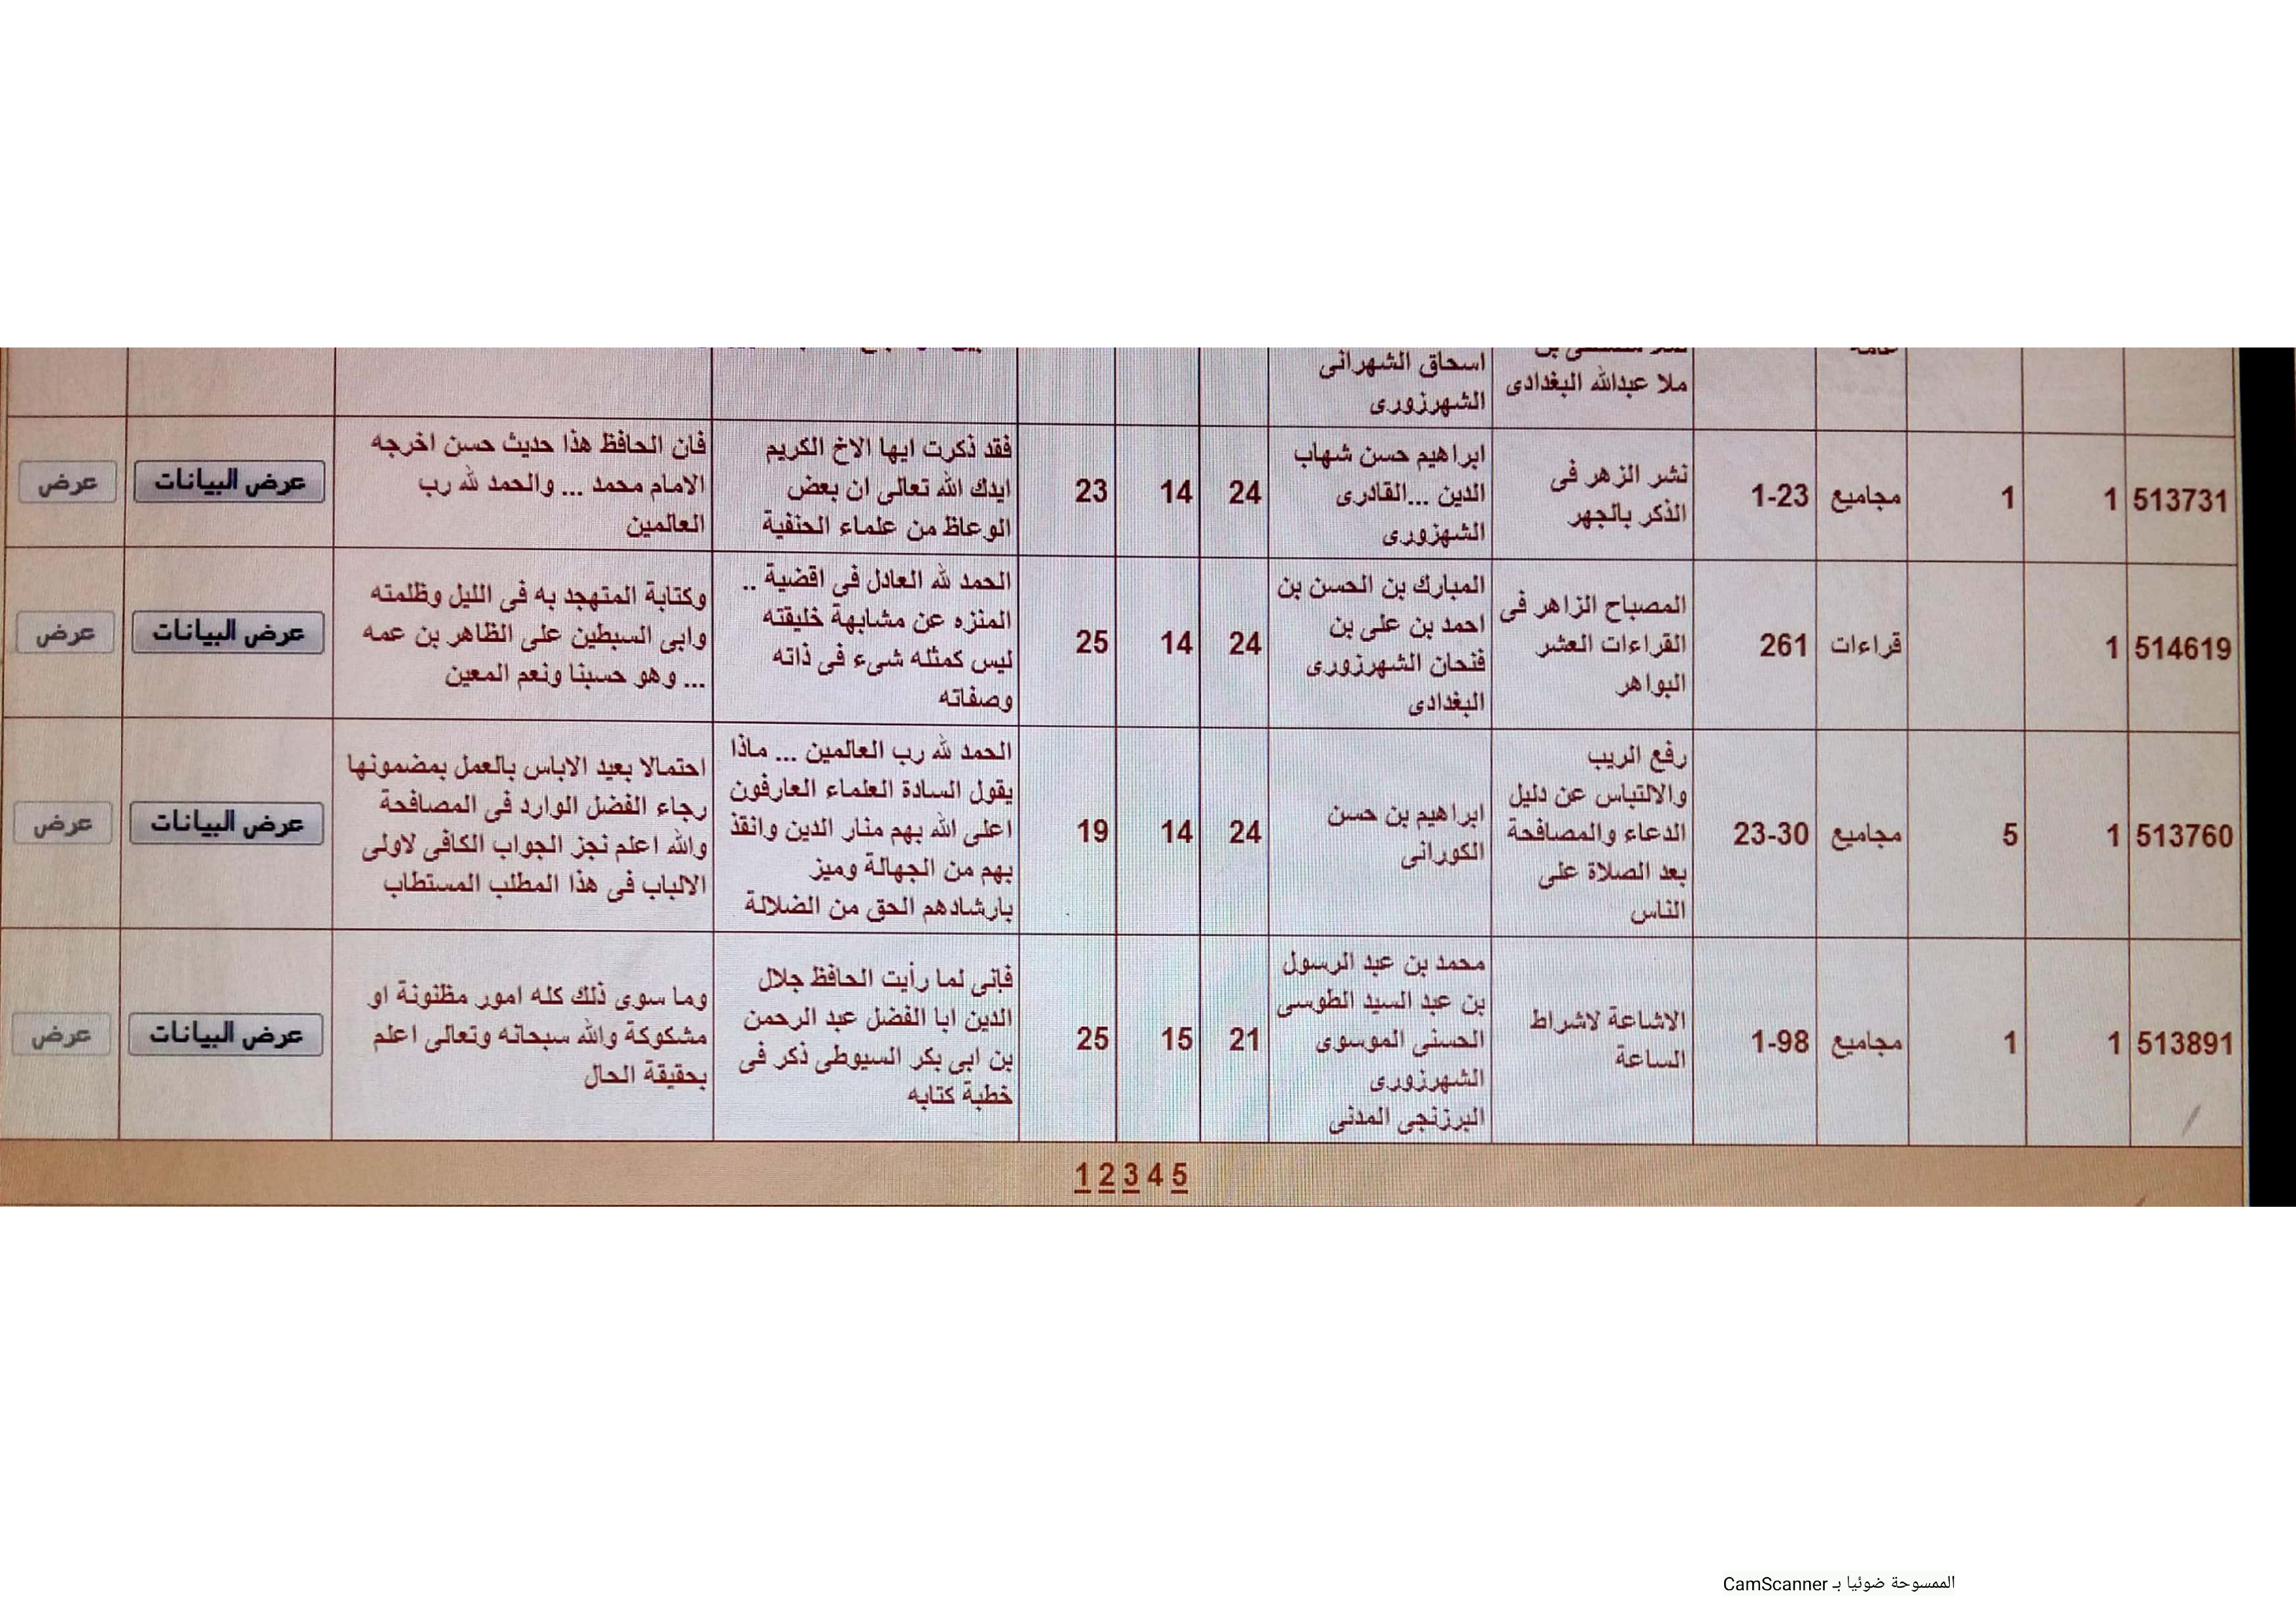 اسحاق الشهرانى
الشهرزورى
ملا عبدالله البغدادى
513731
1
1
مجاميع
1-23
نشر الزهر فى
الذكر بالجهر
ابراهيم حسن شهاب
الدين ...القادرى
الشهزورى
24
14
23
فقد ذكرت ايها الاخ الكريم
ايدك الله تعالى ان بعض
الوعاظ من علماء الحنفية
فان الحافظ هذا حديث حسن اخرجه
الامام محمد ... والحمد لله رب
العالمين
عرض البيانات
عرض
514619
1
قراءات
261
المصباح الزاهر فى
القراءات العشر
البواهر
المبارك بن الحسن بن
احمد بن على بن
فنحان الشهرزورى
البغدادى
24
14
25
الحمد لله العادل فى اقضية ..
المنزه عن مشابهة خليقته
ليس كمثله شىء فى ذاته
وصفاته
وكتابة المتهجد به فى الليل وظلمته
وابى السبطين على الظاهر بن عمه
... وهو حسبنا ونعم المعين
عرض البيانات
عرض
513760
1
5
مجاميع
23-30
رفع الريب
والالتباس عن دليل
الدعاء والمصافحة
بعد الصلاة على
الناس
ابراهيم بن حسن
الكورانى
24
14
19
الحمد لله رب العالمين ... ماذا
يقول السادة العلماء العارفون
اعلى الله بهم منار الدين وانقذ
بهم من الجهالة وميز
بارشادهم الحق من الضلالة
احتمالا بعيد الاباس بالعمل بمضمونها
رجاء الفضل الوارد فى المصافحة
والله اعلم نجز الجواب الكافى لاولى
الالباب فى هذا المطلب المستطاب
عرض البيانات
عرض
513891
1
1
مجاميع
1-98
الاشاعة لاشراط
الساعة
محمد بن عبد الرسول
بن عبد السيد الطوسى
الحسنى الموسوى
الشهرزورى
البرزنجى المدنى
21
15
25
فإنى لما رأيت الحافظ جلال
الدين ابا الفضل عبد الرحمن
بن ابى بكر السيوطى ذكر فى
خطبة كتابه
وما سوى ذلك كله امور مظنونة او
مشكوكة والله سبحانه وتعالى اعلم
بحقيقة الحال
عرض البيانات
عرض
1 2 3 4 5
الممسوحة ضوئيا بـ CamScanner